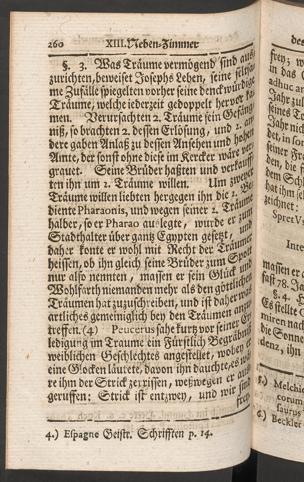 260 XIII. Neben-Zimmer
§. 3. Was Träume vermögend sind
zurichten, beweiset Josephs Leben, seine
me Zufälle spiegelten vorher seine denckwürdige
Träume, welche jederzeit gedoppelt
men. Verursachten 2. Träume sein
niß, so brachten 2. dessen Erlösung, und 2.
dere gaben Anlaß zu dessen Ansehen und
Amte, der sonst ohne diese im Kercker wäre
grauet. Seine Brüder haßten und
ten ihn um 2. Träume willen. Um
Träume willen liebten hergegen ihn die 2.
diente Pharaonis, und wegen seiner 2. Träume
halber, so er Pharao auslegte, wurde er zum
Stadthalter über gantz Egypten gesetzt,
daher konte er wohl mit Recht der Träumer
heissen, ob ihn gleich seine Brüder zum Spott
nur also nennten, massen er sein Glück und
Wohlfarth niemanden mehr als den göttlichen
Träumen hat zuzuschreiben, und ist daher was
artliches gemeiniglich bey den Träumen
treffen. (4) Peucerus sahe kurtz vor seiner
ledigung im Traume ein Fürstlich Begräbniß
weiblichen Geschlechtes angestellet, wobey er
eine Glocken läutete, davon ihn dauchte, es
re ihm der Strick zerrissen, weßwegen er
geruffen: Strick ist entzwey, und wir sind
frey
4.) Espagne Geistr. Schrifften p. 14.
des
frey;
adhuc
Jahr
seines
Jahr
in
seiner
den, die
dem
hat ihm
zeichnet:
massen er
fast 78.
§. 4.
Es stellte
miren
die Sonne
5.) Melchior
6.) Beckler